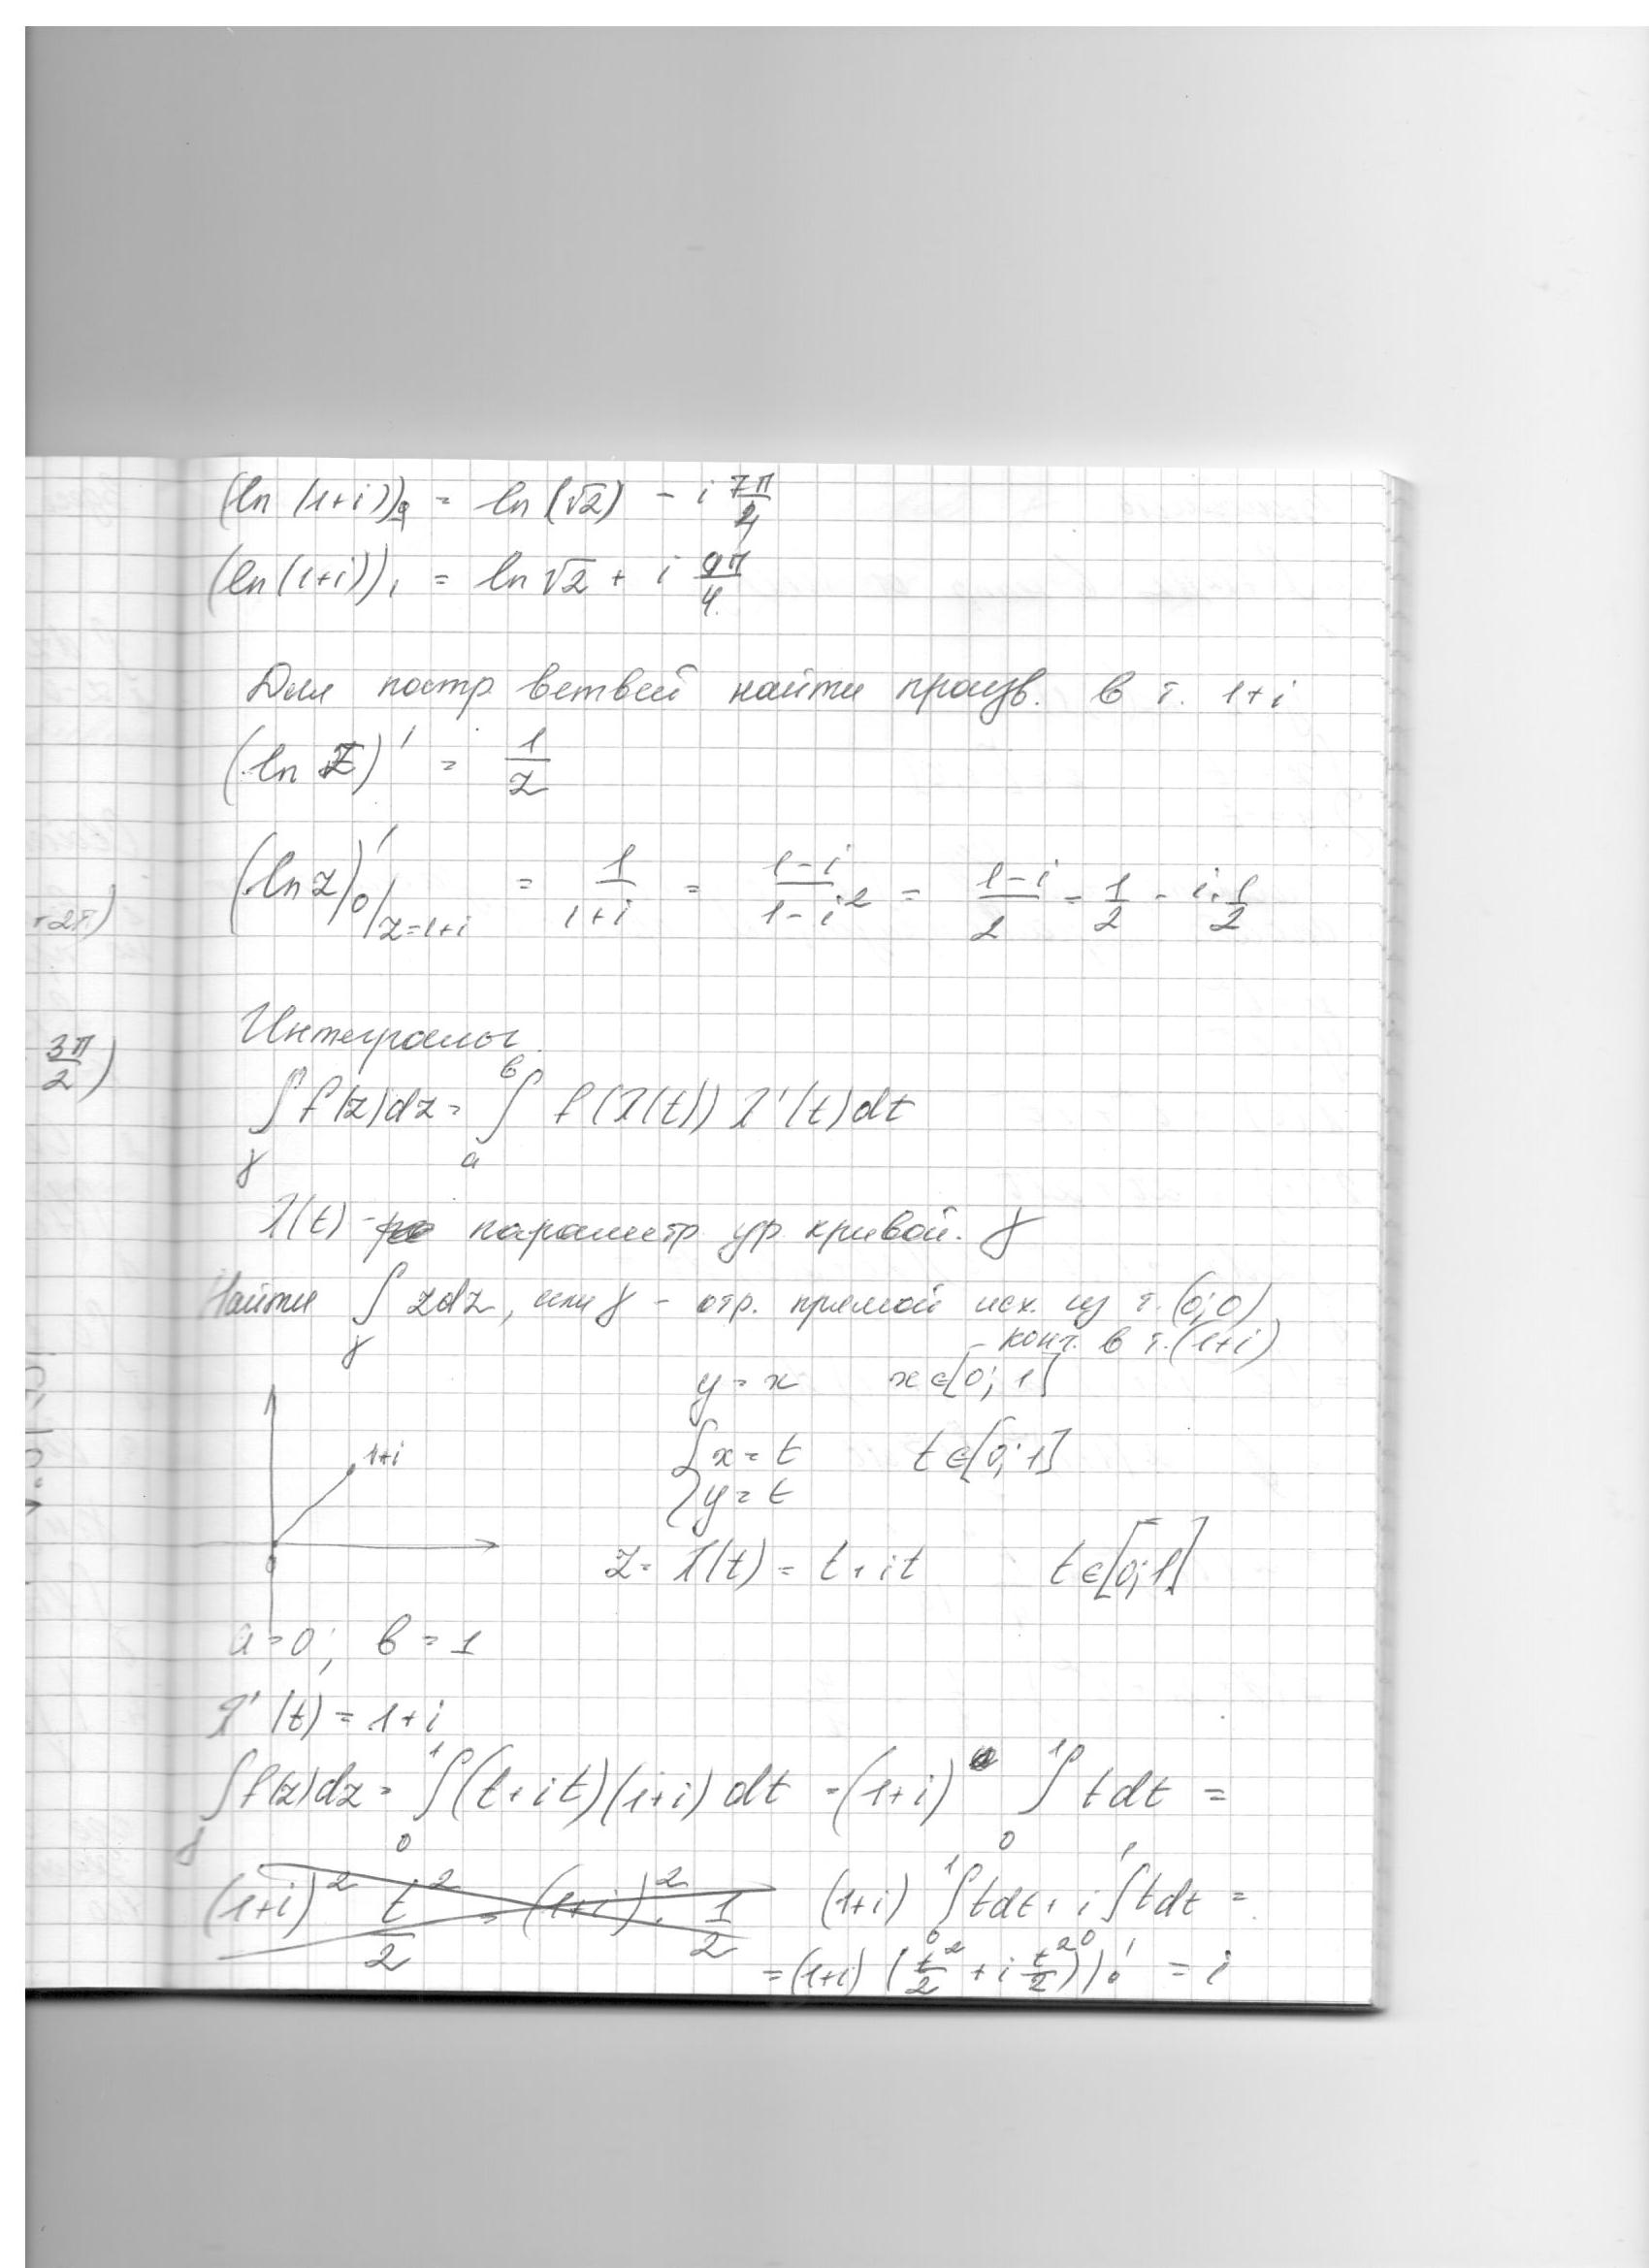 (ln (1+i))₉ = ln(√2) - i 7π/4
(ln(1+i))₁ = ln√2 + i 9π/4
Для постр ветвей найти произв. в т. 1+i
(ln z)' = 1/z
+2π)
(ln z)'₀|z=1+i = 1/(1+i) = (1-i)/(1-i²) = (1-i)/2 = 1/2 - i·1/2
3π/2)
Интегралы
∫γ f(z)dz = ∫ₐᵇ f(λ(t)) λ'(t)dt
λ(t) - параметр ур кривой. γ
Найти ∫γ zdz, если γ - отр. прямой исх. из т. (0;0)
- конч. в т. (1+i)
y = x x∈[0; 1]
1+i
{x = t t∈[0; 1]
{y = t
0
z = λ(t) = t + it t∈[0;1]
a = 0; в = 1
λ'(t) = 1+i
∫γ f(z)dz = ∫₀¹(t+it)(1+i)dt = (1+i) ∫₀¹ tdt =
(1+i)² t²/2 = (1+i)² · 1/2 (1+i) ∫₀¹tdt + i∫₀¹tdt =
= (1+i) (t²/2 + i t²/2)|₀¹ = i